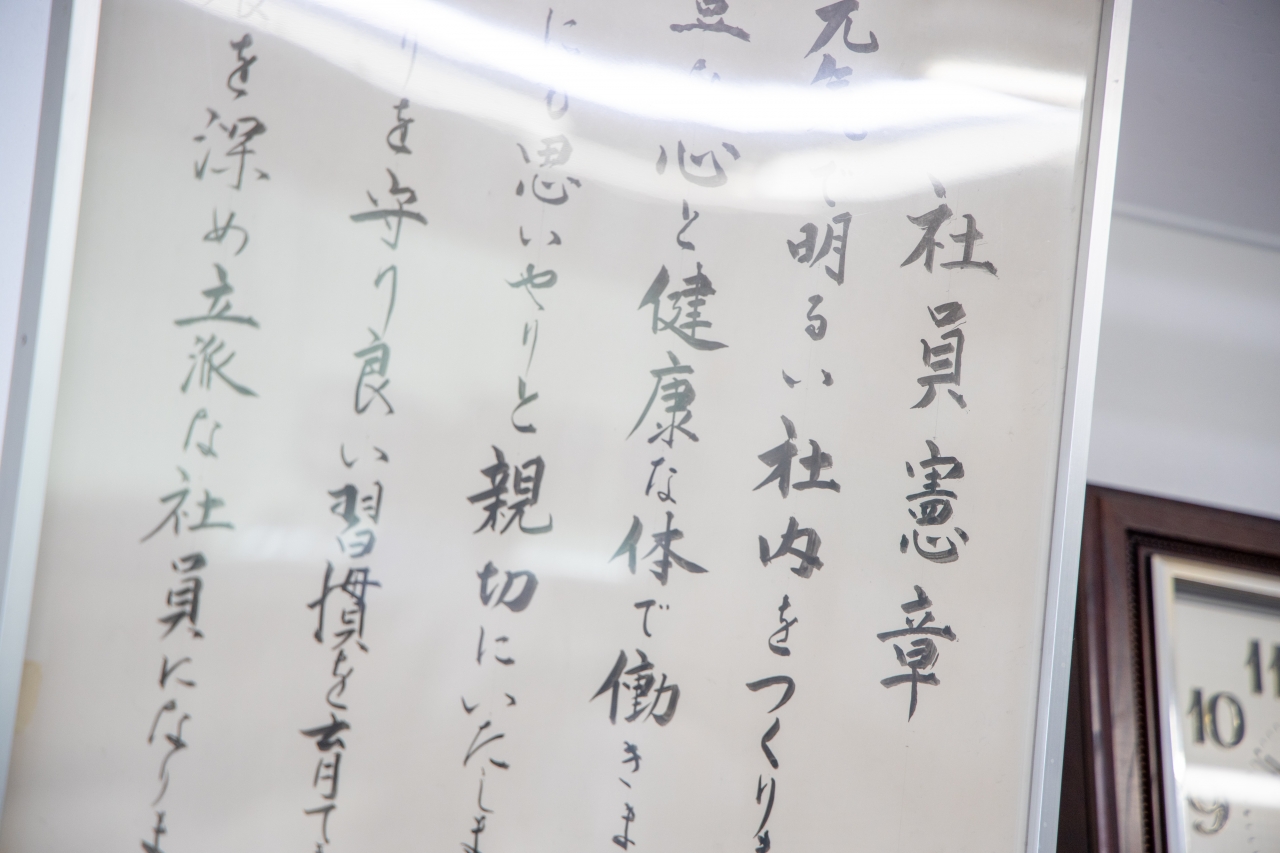 社員憲章
元気で明るい社内をつくりま
な心と健康な体で働きま
にも思いやりと親切にいたしま
りを守り良い習慣を育てま
を深め立派な社員になりま
11
10
9